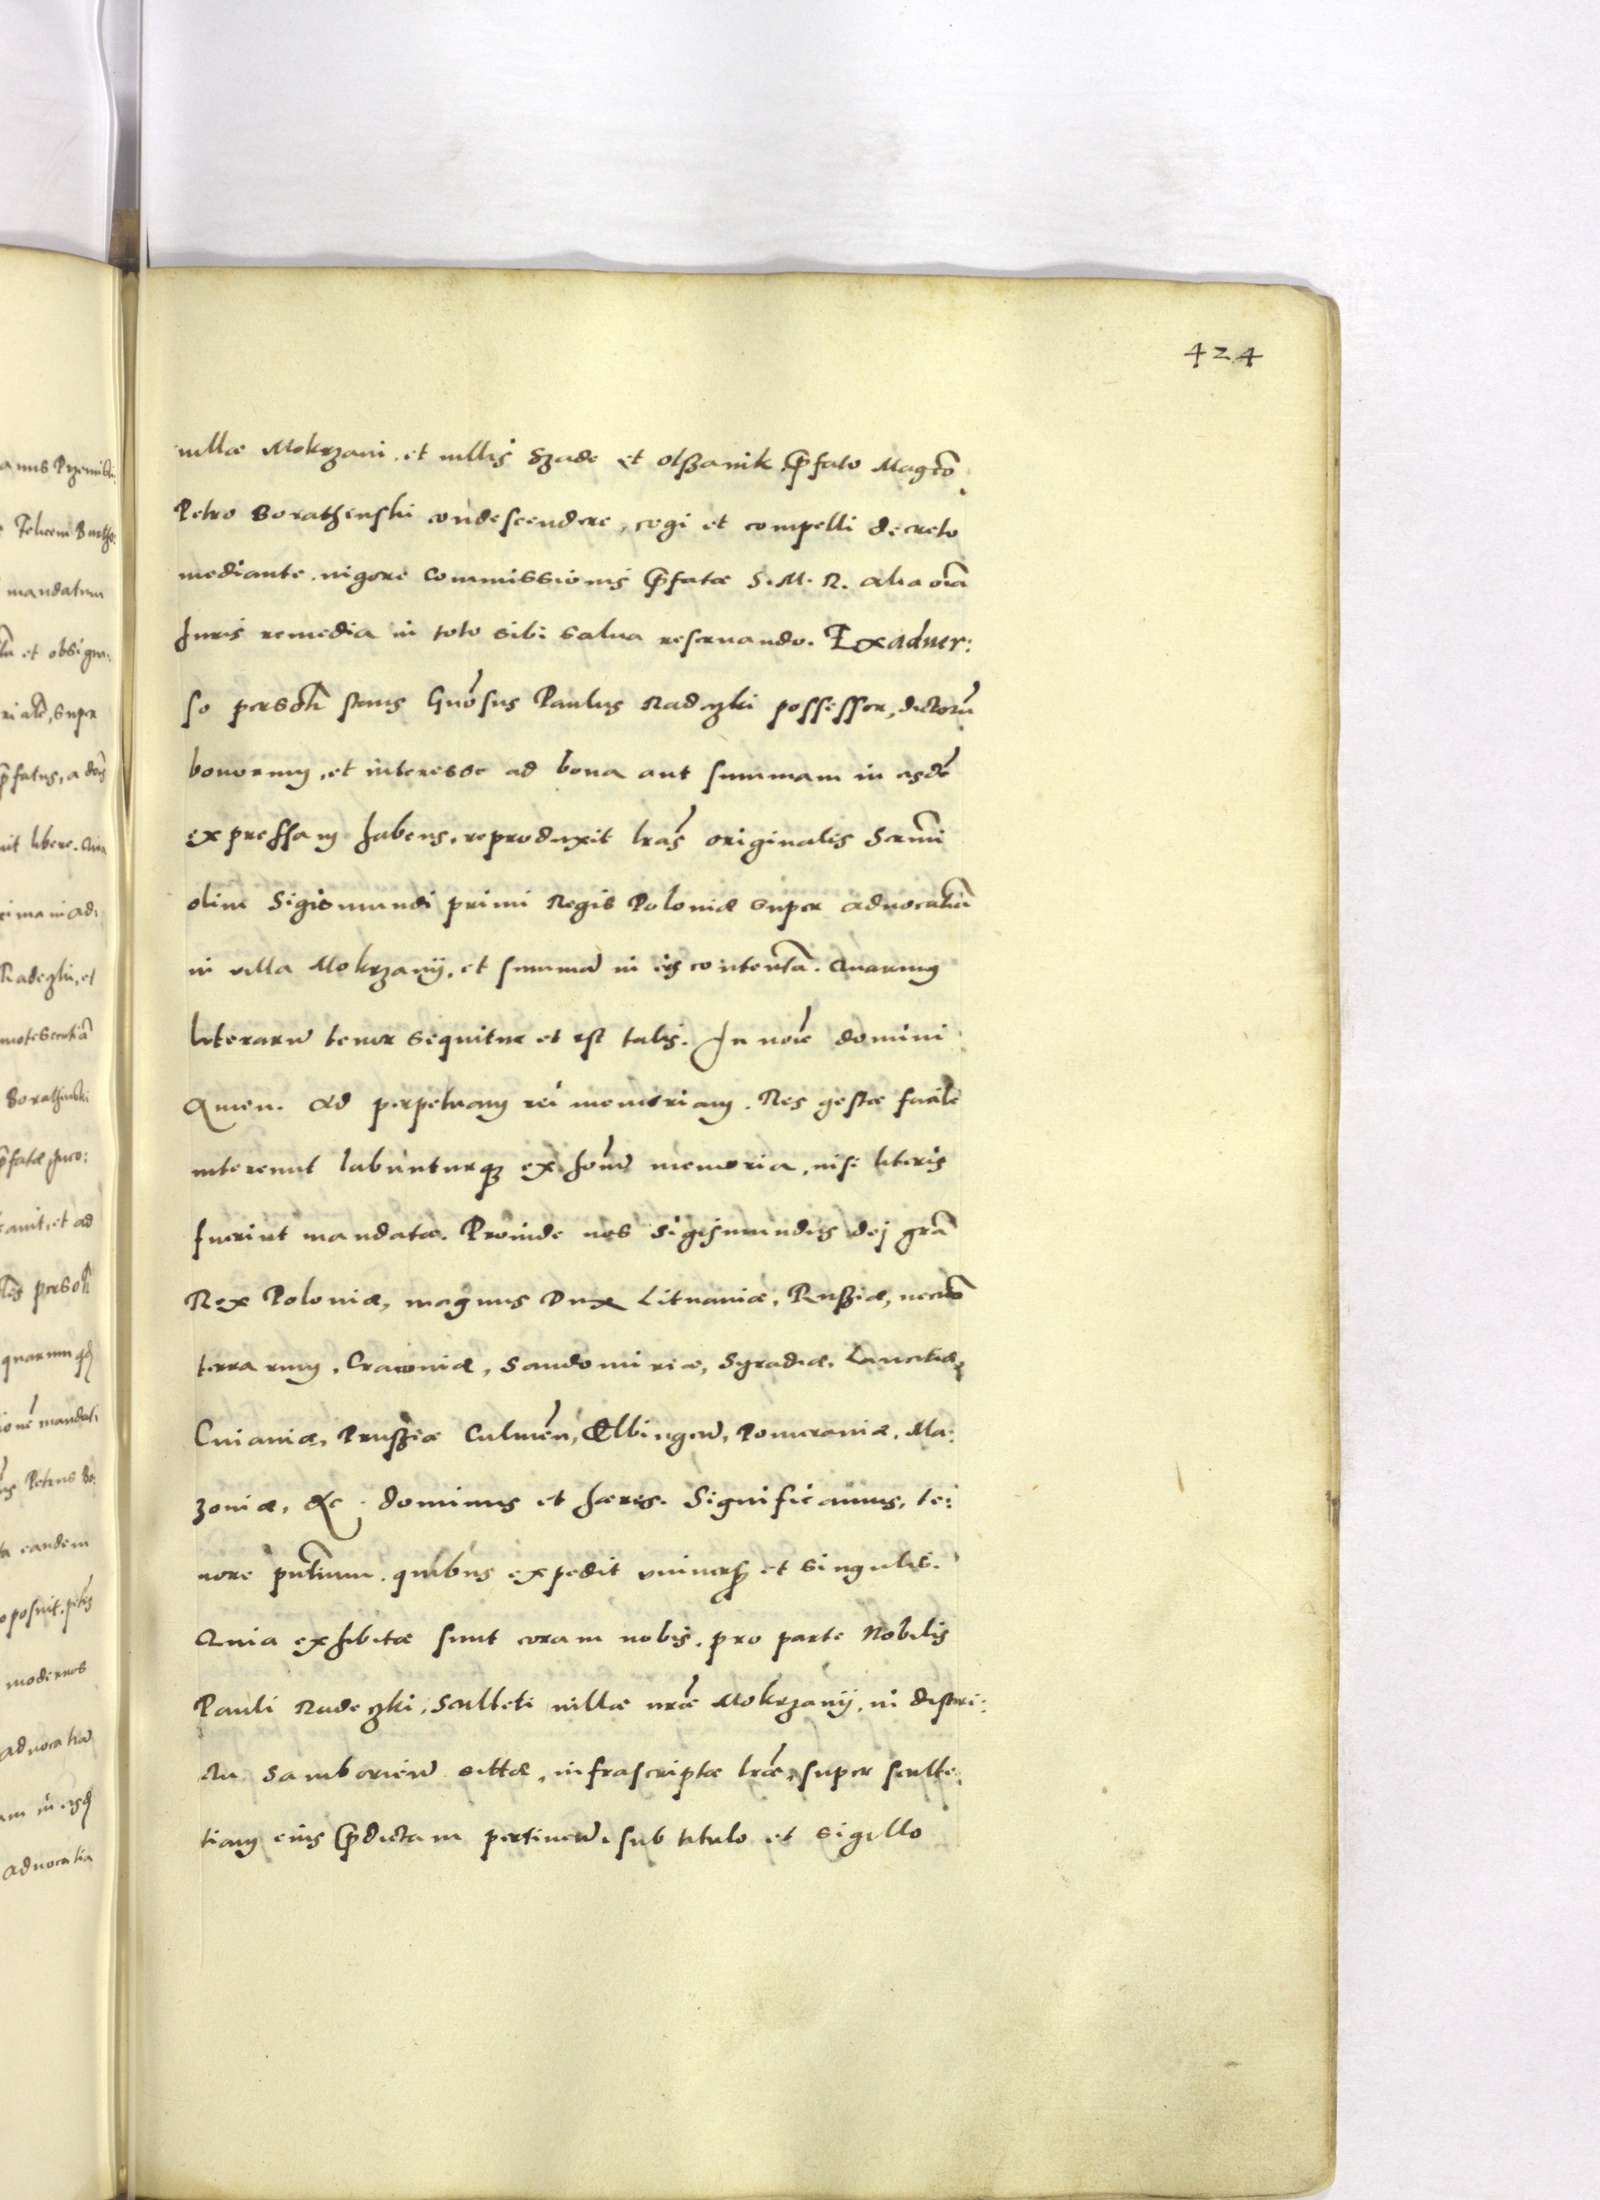 424
villæ Mokrzani, et villis Szade et Olszanik p̃fato Magco
Petro Borathynski condescendere, cogi et compelli decreto
mediante, vigore Commissionis p̃fatæ S. M. R. alia oĩa
Juris remedia in toto sibi salua reseruando. Ex aduer:
so personl̃r stans Gnõsus Paulus Radeczki possessor, dictorũ
bonorum, et interesse ad bona aut summam in eisdẽ
expressam habens, reproduxit lrãs originalis Sermi
olim Sigismundi primi Regis Poloniæ super aduocatiã
in villa Mokrzany, et summã in eis contentã. Quarum
literarũ tenor sequitur et est talis. In noĩe domini
Amen. Ad perpetuam rei memoriam. Res gestæ facile
intereunt labunturq̃ ex hoĩm memoria, nisi literis
fuerint mandatæ. Proinde nos Sigismundus dej grã
Rex Poloniæ, magnus Dux Lituaniæ, Russiæ, necnõ
terrarum, Cracouiæ, Sandomiriæ, Syradiæ, Lanciciæ,
Cuiauiæ, Prussiæ Culmeñ, Elbingeñ, Pomeraniæ, Ma:
zouiæ, &c. dominus et hæres. Significamus, te:
nore pñtium, quibus expedit vniuersis et singulis.
Quia exhibitæ sunt coram nobis, pro parte Nobilis
Pauli Radeczki, Sculteti villæ nrãe Mokrzany, in distri:
ctu Samborieñ sittæ, infrascriptæ lrãe, super sculte:
tiam eius p̃dictam pertineñ, sub titulo et sigillo